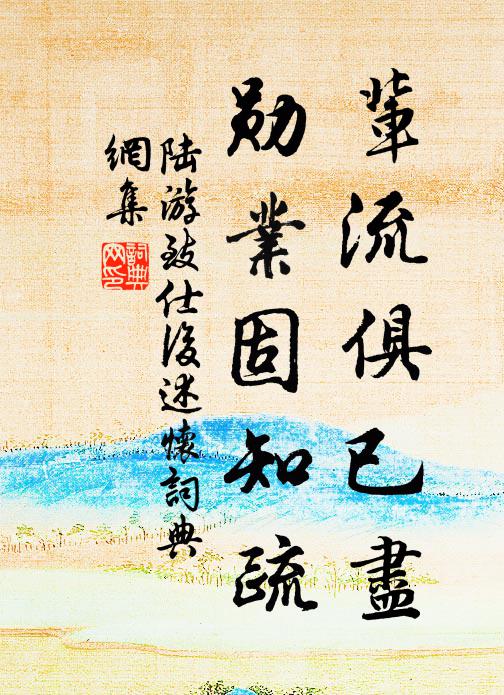 輩流俱已盡
勛業固知疏
陸游致仕後述懷詞典
網集
詞典
网印